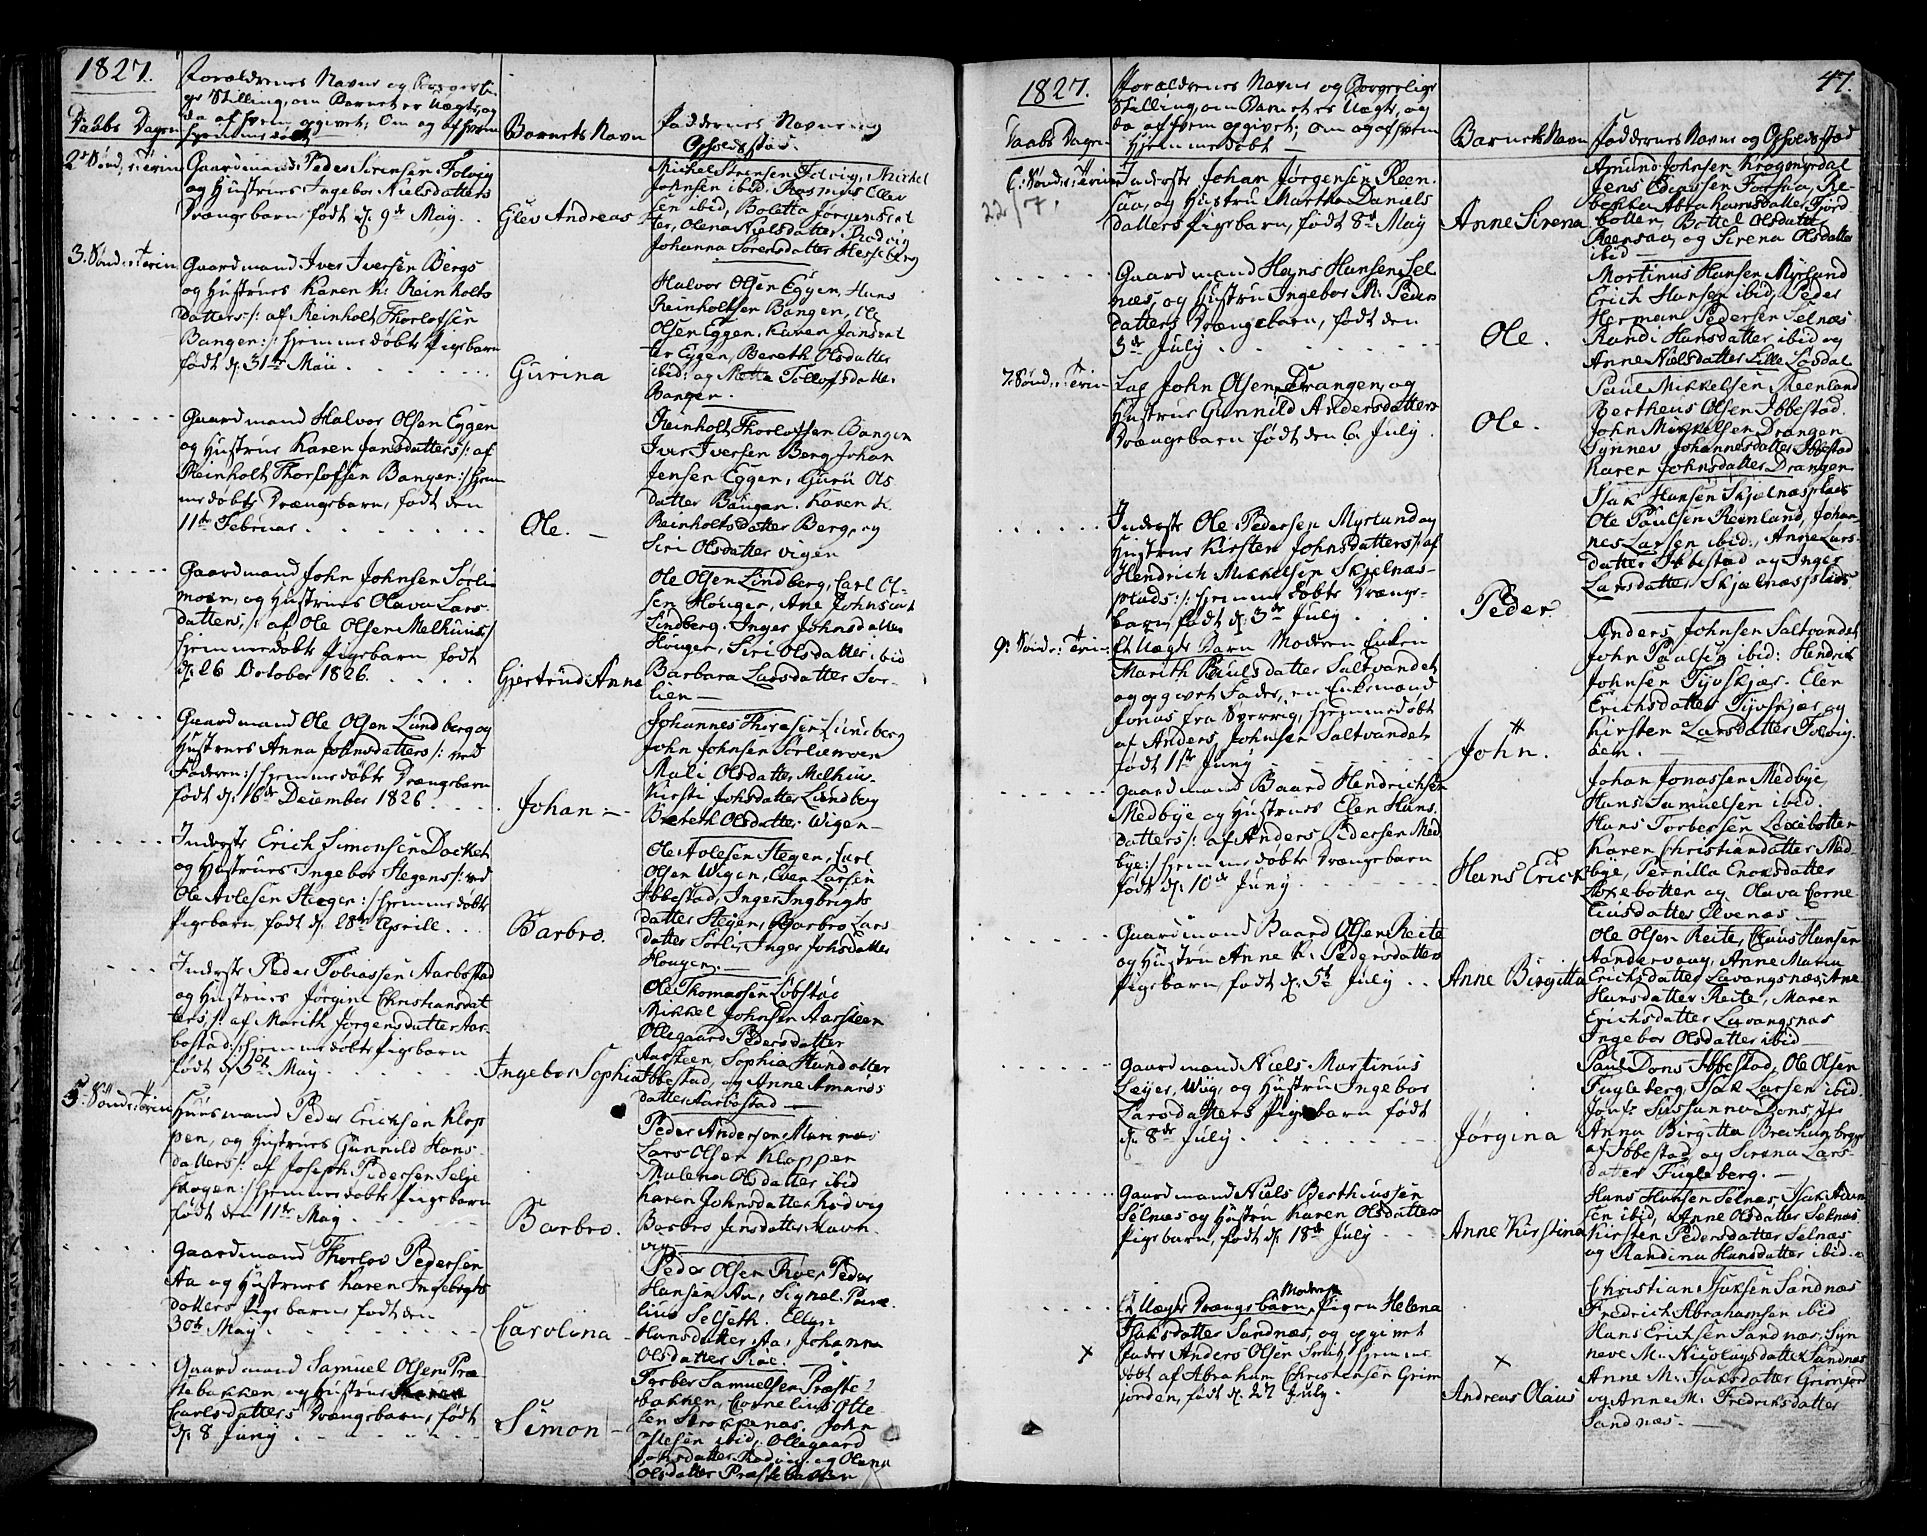 1827.
Forældrenes Navne og Borgerli-
ge Stilling, om Barnet er Uægte, og
da af hvem opgivet, om og af hvem
hjemmedøbt
Daabs Dagen
Barnets Navn
Faddernes Navne og
Opholdsstæd.
2d Sønd: e: Trin:
Gaardmand Peder Sørensen Tolvig
og Hustrues Ingebor Nielsdatters
Drængebarn født d. 9de May.
Elev Andreas
Michel Sørensen Tolvig, Mickel
Johnsen ibid: Rasmus Elev
sen ibid, Boletta Jørgensdat
ter, Olena Nielsdatter Rodvig
Johanna Sørensdatter Hesseberg
3. Sønd: e: Trin:
Gaardmand Iver Iversen Bergs
og Hustrues Karen K: Reinholts
datters /: af Reinholt Thorlofsen
Bangen :/ hjemmedøbte Pigebarn
født d. 31te Maii
Gurina
Halvor Olsen Eggen, Hans
Reinholtsen Bangen, Ole
Olsen Eggen, Karen Jansdat
ter Eggen, Bereth Olsdatter
ibid: og Mette Tollofsdatter
Bangen.
Gaardmand Halvor Olsen Eggen
og Hustrues Karen Jansdatters /: af
Reinholt Thorlofsen Bangen :/ hjem
medøbte Drængebarn, født den
11te Februar
Ole.
Reinholt Thorlofsen Bangen
Iver Iversen Berg, Johan
Jensen Eggen, Guru Ols
datter Bangen, Karen K.
Reinholtsdatter Berg, og
Siri Olsdatter Vigen
Gaardmand John Johnsen Sørli
moen, og Hustrues Olava Lars
datters, /: af Ole Olsen Melhuus :/
hjemmedøbte Pigebarn født
d. 26 October 1826.
Gjertrud Anna
Ole Olsen Lindberg, Carl Ol-
sen Houger, Ane Johnsdat
Lindberg. Inger Johnsdatter
Houger, Siri Olsdatter ibid
Barbara Larsdatter Sør-
lien
Gaardmand Ole Olsen Lundberg og
Hustrues Anna Johnsdatters /: ved
Faderen :/ hjemmedøbte Drængebarn
født d. 16de December 1826
Johan
Johannes Thoresen Lundberg
John Johnsen Sørliemoen
Mali Olsdatter Melhuu
Kirsti Johsdatter Lundberg
Bereth Olsdatter Wigen
Inderste Erich Simonsen Docket
og Hustrues Ingebor Stegens /: ved
Ole Avlesen Stegen :/ hjemmedøbte
Pigebarn født d. 28de Aprill.
Barbro.
Ole Avlesen Stegen, Carl
Olsen Wigen, Even Larsen
Ibbestad, Inger Ingbrigts
datter Stegen, Barbro Lars
datter Sørli, Inger Johsdatter
Hougen.
Inderste Peder Tobiassen Aarbostad
og Hustrues Jørgine Christiansdat
ters, /: af Marith Jørgensdatter Aar-
bostad :/ hjemmedøbte Pigebarn
født d. 5te May
Ingebor Sophia
Ole Thomassen Løbstoe
Mikkel Johnsen Aarsteen
Ollegaard Pedersdatter
Aarsteen Sophia Hansdatter
Ibbestad, og Anne Amunds
datter Aarbostad
5. Sønd: e: Trin:
Huusmand Peder Erichsen Klop
pen, og Hustrues Gunnild Hans-
datters /: af Joseph Pedersen Selje
skogen :/ hjemmedøbte Pigebarn
født den 11te May
Barbro.
Peder Andersen Marinæs
Lars Olsen Kloppen
Malena Olsdatter ibid
Karen Johnsdatter Rodvig
Barbro Jensdatter Havn
vig
Gaardmand Thorlov Pedersen
Aa og Hustrues Karen Ingebrigts
datters Pigebarn, født den
30te May
Carolina
Peder Olsen Roe, Peder
Hansen Aa, Signel Paue
lius Selseth. Ellen
Hansdatter Aa, Johanna
Olsdatter Roe.
Gaardmand Samuel Olsen Præ
stebakken, og Hustrues
Carlsdatters Drængebarn, født
d. 8 Juny
Simon
Torber Samuelsen Præste
bakken, Cornelius Otte
sen Strokkenæs. John
Istesen ibid, Ollegaard
Johsdatter Rodvig, og Olena
Olsdatter Præstebakken
47.
1827.
Forældrenes Navne og Borgerlige
Stilling, om Barnet er Uægte, og
da af hvem opgivet; om og af hvem
hjemmedøbt
Daabs Dagen
Barnets Navn
Faddernes Navne og Opholdsstæd
6. Sønd: e: Trin:
22/7.
Inderste Johan Jørgensen Reen-
saa, og Hustru Martha Daniels
datters Pigebarn, født 8de May
Anne Sirena
Amund Johnsen Krogmyrdal
Jens Eliassen Forsaa, Re-
bekka Abrahamsdatter Fjord
botten, Bottel Olsdatter
Reensaa, og Sirena Olsdatter
ibid
Gaardmand Hans Hansen Sel
næs, og Hustru Ingebor M: Peder
datters Drængebarn, født den
3de July
Ole.
Mortinus Hansen Myrland
Erich Hansen ibid, Peder
Herman Pedersen Selnæs
Randi Hansdatter ibid og
Anne Nielsdatter Lille Løsdal
7. Sønd: e: Trin:
Log John Olsen Drangen, og
Hustrue Gunnild Andersdatters
Drængebarn født den 6. July.
Ole.
Paul Mikkelsen Reenland
Bertheus Olsen Ibbestad.
John Mikkelsen Drangen
Synnev Johannesdatter Ibbestad
Karen Johnsdatter Drangen
Inderste Ole Pedersen Myrlund og
Hustrue Kirsten Johnsdatters /: af
Hendrich Mikkelsen Skjelnæs-
plads :/ hjemmedøbte Drænge-
barn født d. 3de July
Peder
Isak Hansen Skjælnæsplads
Ole Paulsen Reenland, Johan-
nes Larsen ibid:, Anne Lars-
datter Ibbestad og Inger
Larsdatter Skjælnæsplads
9. Sønd: e: Trin:
Et Uægte Barn Moderen Enken
Marith Paulsdatter Saltvandet
og opgivet Fader, en Enkemand
Jonas fra Sverrig, hjemmedøbt
af Anders Johnsen Saltvandet
født 1ste Juny
John.
Anders Johnsen Saltvandet
John Paulsen ibid: Hendrik
Johnsen Tyvskjær. Elen
Erichsdatter Tyvskjær og
Kirsten Larsdatter Tolvig
bem.
Gaardmand Baard Hendrichsen
Medbye og Hustrues Elen Hans
datters /: af Anders Pedersen Med
bye :/ hjemmedøbte Drængebarn
født d. 10de Juny.
Hans Erick
Johan Jonassen Medbye
Hans Samuelsen ibid.
Hans Torbersen Loxebotten
Karen Christiandatter Med-
bye, Pernilla Enoksdatter
Loxebotten og Olava Corne
liusdatter Elvenæs
Gaardmand Baard Olsen Reite
og Hustru Anne K. Pedersdatters
Pigebarn, født d. 5te July
Anne Birgitta
Ole Olsen Reite, Claus Hansen
Aandervaag, Anne Maria
Erichsdatter Lavangsnæs, Ane
Hansdatter Reite, Maren
Erichsdatter Lavangsnæs
Ingebor Olsdatter ibid
Gaardmand Niels Martinus
Lejer, Wiig, og Hustru Ingebor
Larsdatters Pigebarn født
d. 8de July
Jørgina
Paul Dons Ibbestad, Ole Olsen
Fugleberg, Isak Larsen ibid.
Jomf: Sussanna Dons, Jfr
Anna Birgitta Brechan, begge
af Ibbestad, og Sirena Lars-
datter Fugleberg.
Gaardmand Niels Bertheussen
Selnæs og Hustru Karen Olsdatters
Pigebarn, født d. 18de July
Anne Kirstina
Hans Hansen Selnæs, Isak Adam
sen ibid, Anne Olsdatter Selnæs
Kirsten Pedersdatter Selnæs
og Randina Hansdatter ibid.
Et Uægte Drængebarn, Moderen Pigen Helena
Isaksdatter Sandnæs, og opgivet
Fader Anders Olsen Smit, hjemme
døbt af Abraham Christensen Grim
jorden, født d. 27 July.
x
x
Andreas Olaius
Christian Isaksen Sandnæs
Fredrich Abrahamsen ibid
Hans Erichsen Sandnæs, Syn
neve M. Nicolaysdatter Sandnæs
Anne M. Isaksdatter Grimjord
og Anne M. Fredriksdatter
Sandnæs.